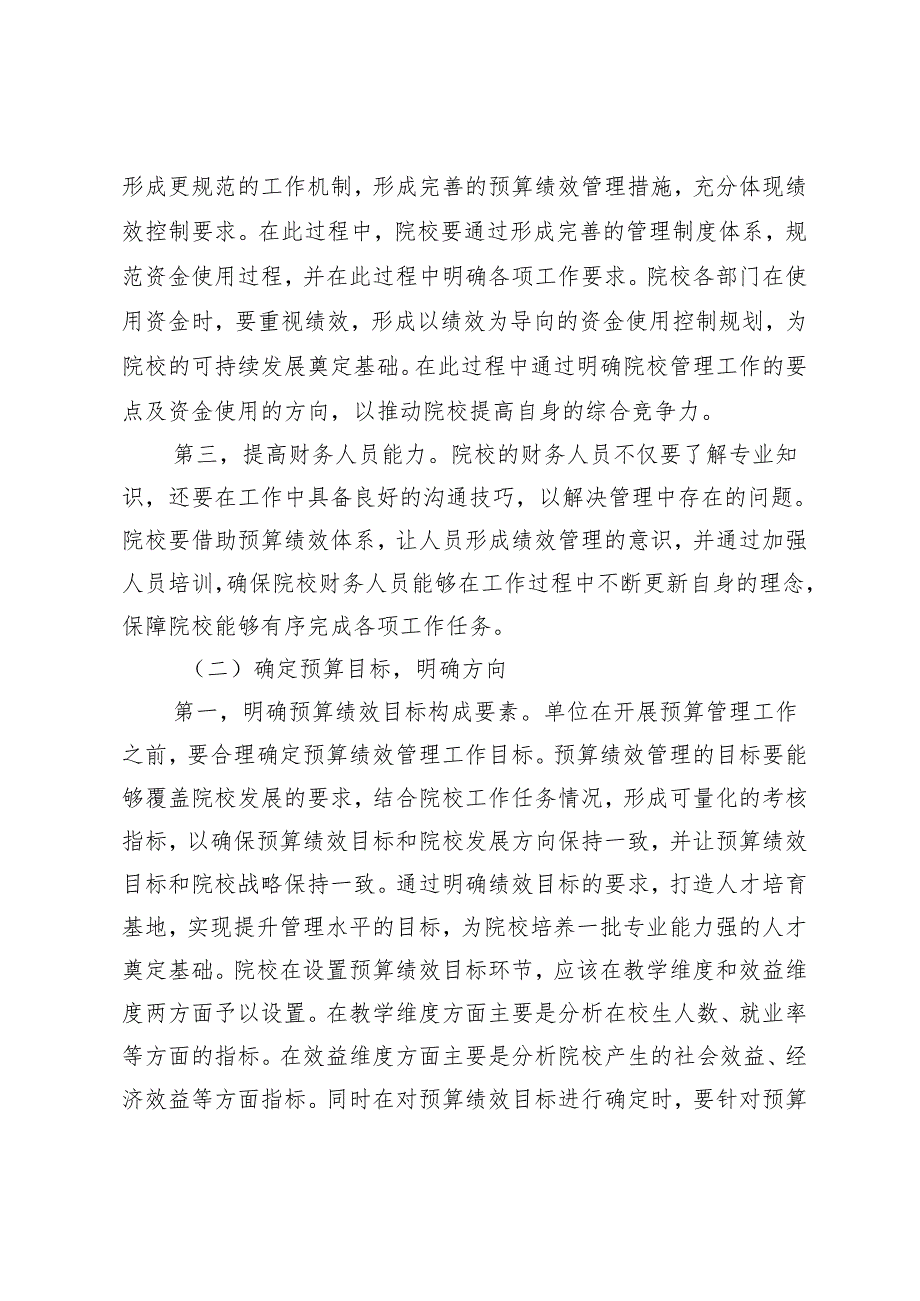 形成更规范的工作机制，形成完善的预算绩效管理措施，充分体现绩
效控制要求。在此过程中，院校要通过形成完善的管理制度体系，规
范资金使用过程，并在此过程中明确各项工作要求。院校各部门在使
用资金时，要重视绩效，形成以绩效为导向的资金使用控制规划，为
院校的可持续发展奠定基础。在此过程中通过明确院校管理工作的要
点及资金使用的方向，以推动院校提高自身的综合竞争力。
第三，提高财务人员能力。院校的财务人员不仅要了解专业知
识，还要在工作中具备良好的沟通技巧，以解决管理中存在的问题。
院校要借助预算绩效体系，让人员形成绩效管理的意识，并通过加强
人员培训，确保院校财务人员能够在工作过程中不断更新自身的理念，
保障院校能够有序完成各项工作任务。
（二）确定预算目标，明确方向
第一，明确预算绩效目标构成要素。单位在开展预算管理工作
之前，要合理确定预算绩效管理工作目标。预算绩效管理的目标要能
够覆盖院校发展的要求，结合院校工作任务情况，形成可量化的考核
指标，以确保预算绩效目标和院校发展方向保持一致，并让预算绩效
目标和院校战略保持一致。通过明确绩效目标的要求，打造人才培育
基地，实现提升管理水平的目标，为院校培养一批专业能力强的人才
奠定基础。院校在设置预算绩效目标环节，应该在教学维度和效益维
度两方面予以设置。在教学维度方面主要是分析在校生人数、就业率
等方面的指标。在效益维度方面主要是分析院校产生的社会效益、经
济效益等方面指标。同时在对预算绩效目标进行确定时，要针对预算